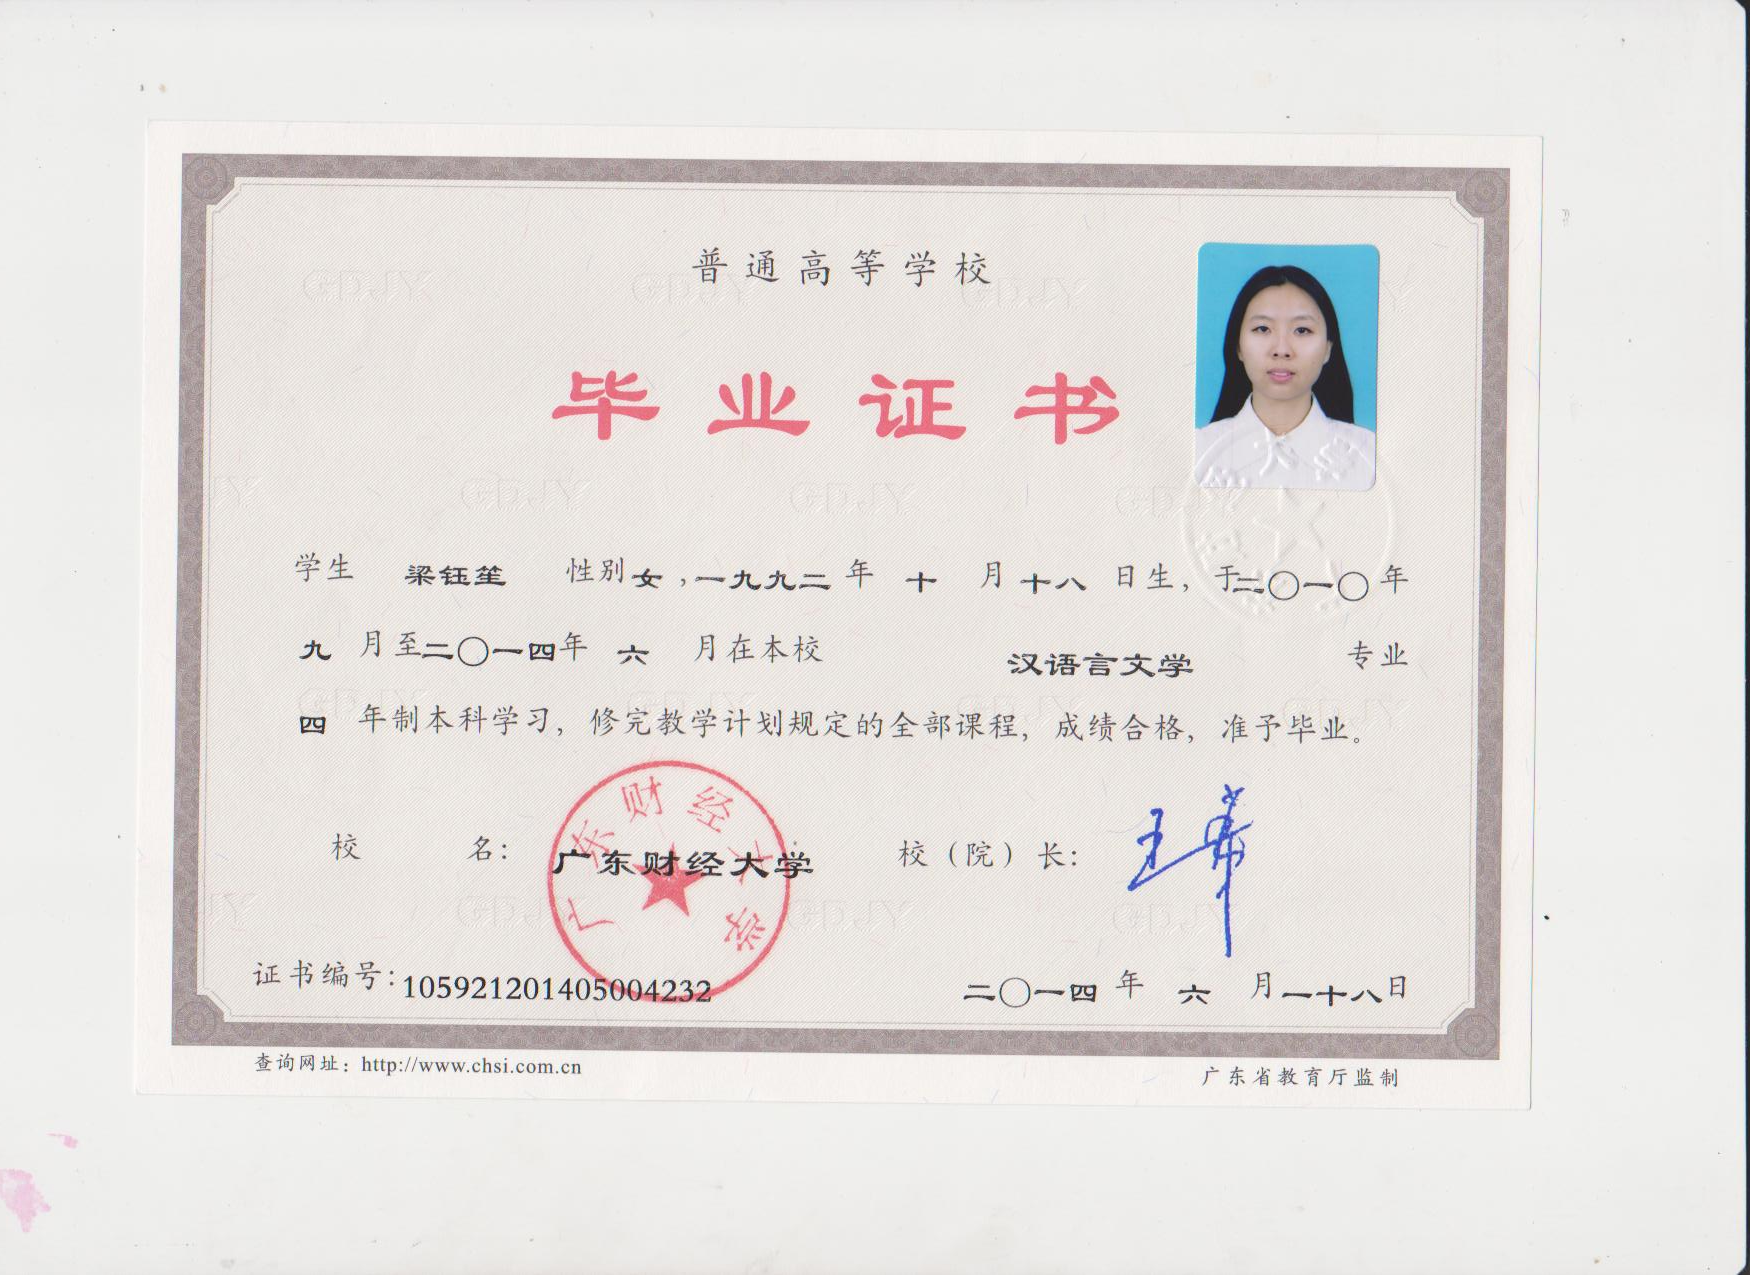 普通高等学校
毕业证书
学生 梁钰笙 性别女,一九九二年 十 月十八 日生, 于二〇一〇年
九 月至二〇一四年 六 月在本校 汉语言文学 专业
四 年制本科学习, 修完教学计划规定的全部课程, 成绩合格, 准予毕业。
广东财经大学
校 名: 广东财经大学 校(院)长:
证书编号:105921201405004232 二〇一四 年 六 月一十八日
查询网址: http://www.chsi.com.cn 广东省教育厅监制
GDJY